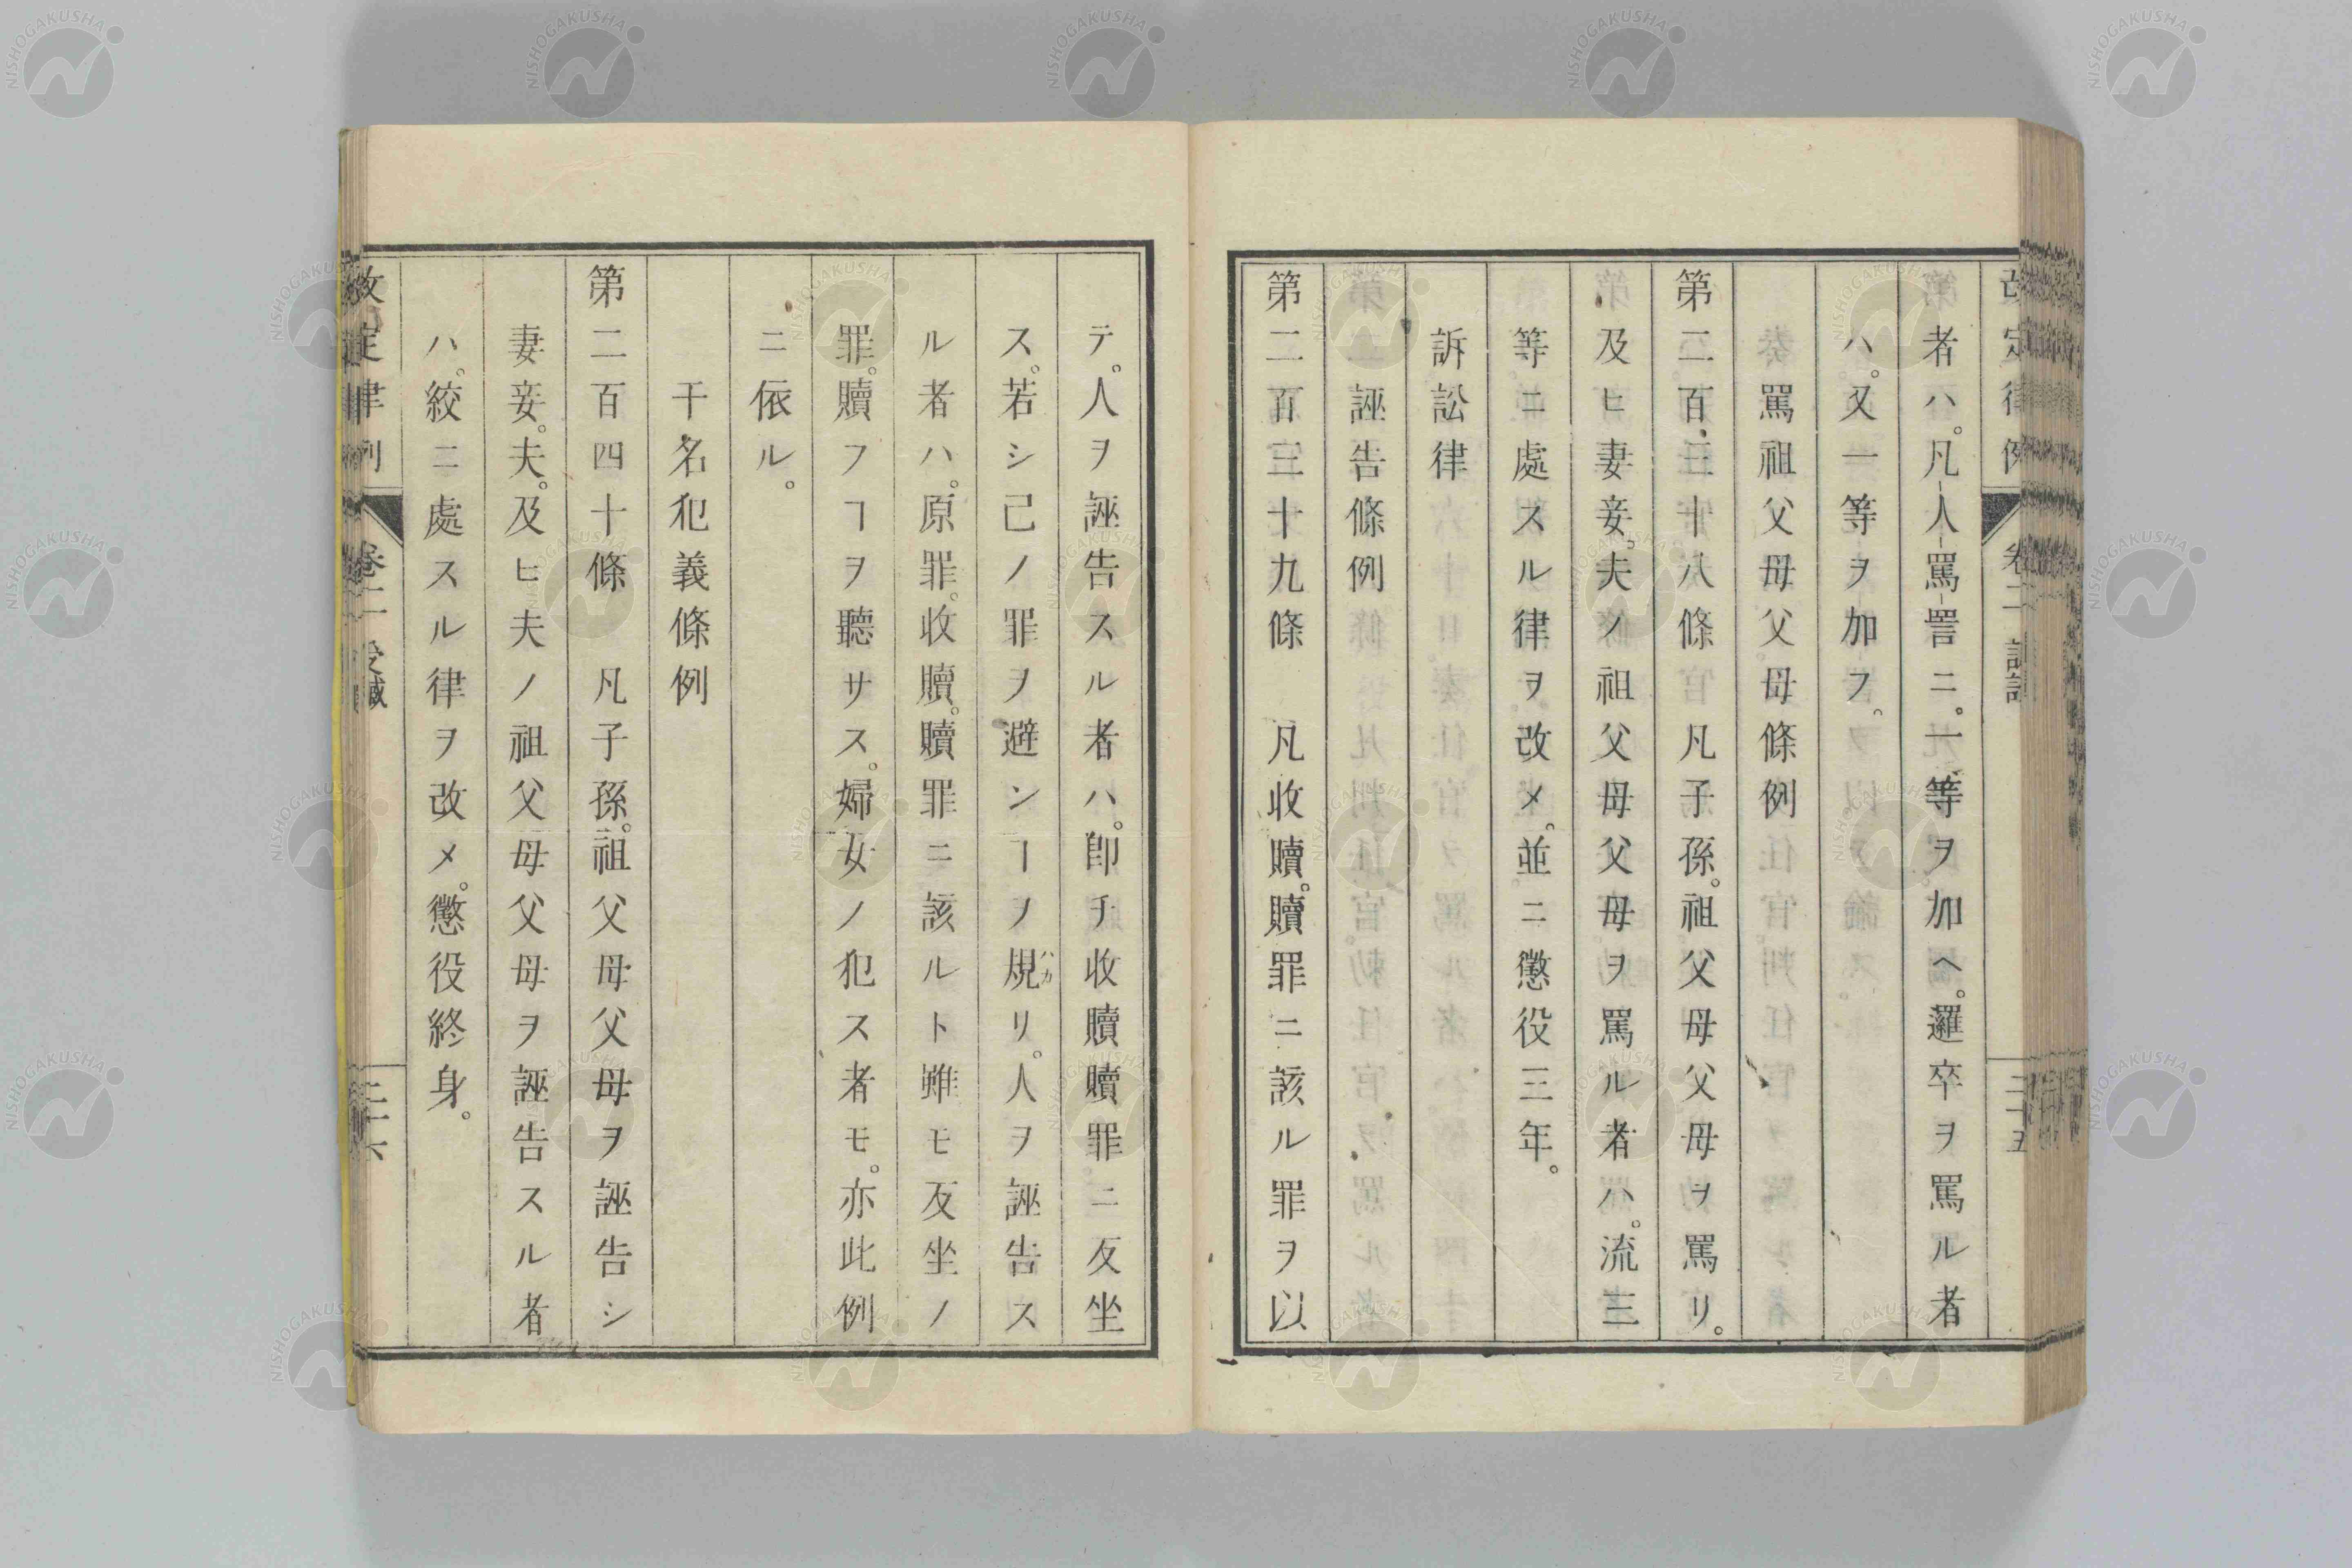 改定律例 卷二 三十五
者ハ。凡人罵詈ニ。一等ヲ加ヘ。邏卒ヲ罵ル者
ハ。又一等ヲ加フ。
罵祖父母父母條例
第二百三十八條 凡子孫。祖父母父母ヲ罵リ。
及ヒ妻妾。夫ノ祖父母父母ヲ罵ル者ハ。流三
等ニ處スル律ヲ改メ。並ニ懲役三年。
訴訟律
誣告條例
第二百三十九條 凡收贖。贖罪ニ該ル罪ヲ以
テ。人ヲ誣告スル者ハ。卽チ收贖贖罪ニ反坐
ス。若シ己ノ罪ヲ避ンヿヲ規リ。人ヲ誣告ス
ハカ
ル者ハ。原罪。收贖。贖罪ニ該ルト雖モ反坐ノ
罪。贖フヿヲ聽サス。婦女ノ犯ス者モ。亦此例
ニ依ル。
干名犯義條例
第二百四十條 凡子孫。祖父母父母ヲ誣告シ
妻妾。夫。及ヒ夫ノ祖父母父母ヲ誣告スル者
ハ。絞ニ處スル律ヲ改メ。懲役終身。
改定律例 卷二 三十六
NISHOGAKUSHA